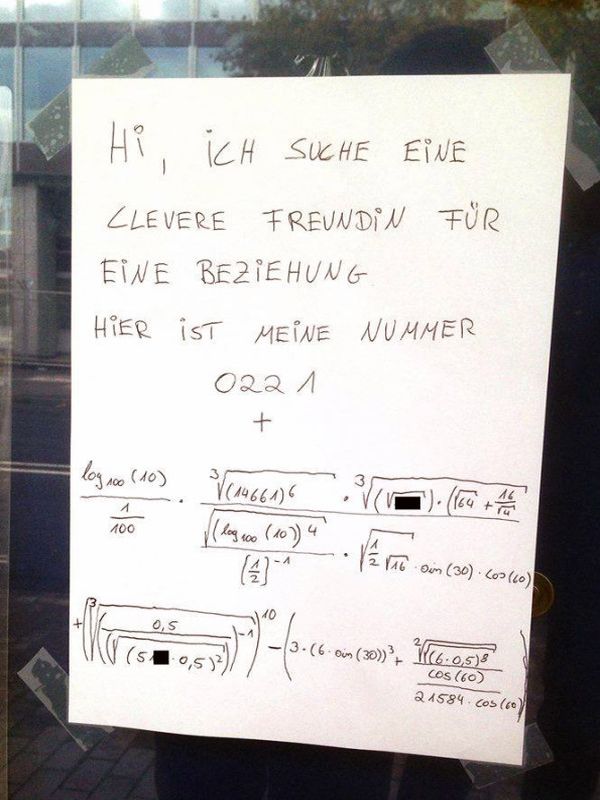 Hi, ICH SUCHE EINE
CLEVERE FREUNDIN FÜR
EINE BEZIEHUNG
HIER IST MEINE NUMMER
0221
+
log₁₀₀(10) / (1/100) · ∛((14661)⁶) · ∛((√) · (√64 + 16/√4)) / (√((log₁₀₀(10))⁴) / [1/2]⁻¹ · √(1/2 √16) · sin(30) · cos(60))
+ (∛((0,5 / (√((5 · 0,5)²)))⁻¹))¹⁰ − (3 · (6 · sin(30))³ + ²√(√((6 · 0,5)⁸)) / cos(60) / 21584 · cos(60))